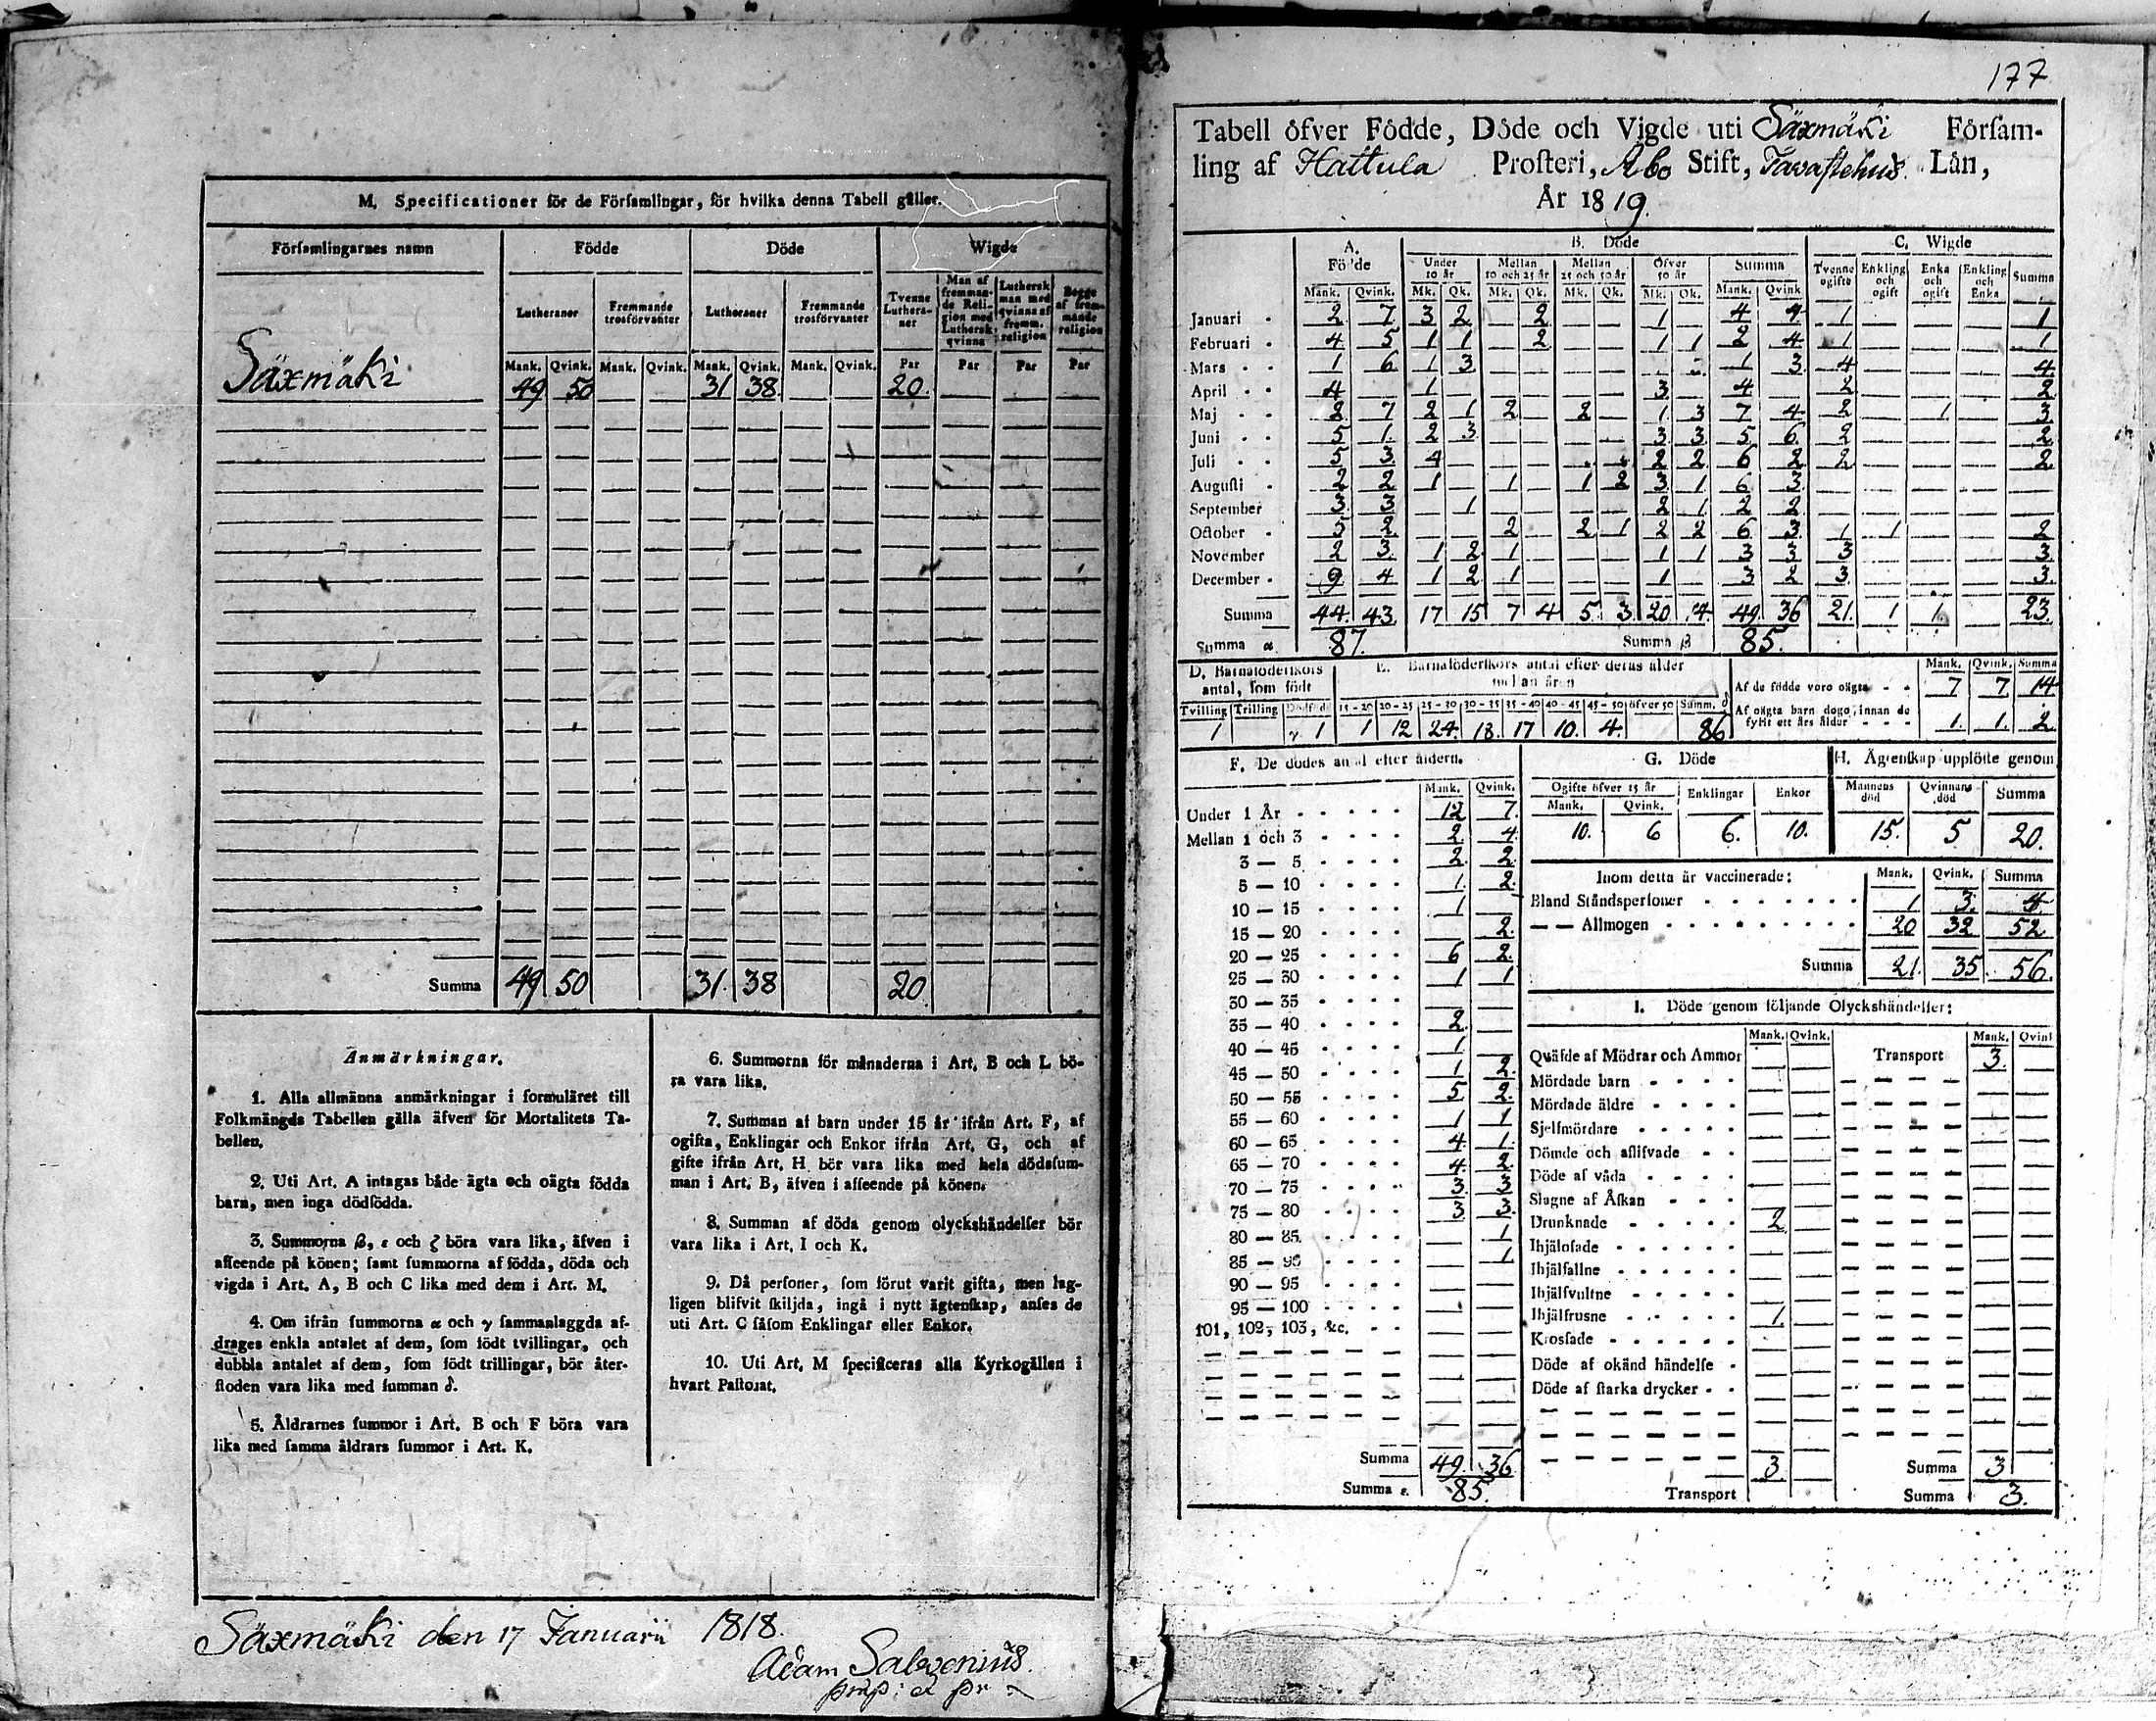 M. Specificationer för de Församlingar, för hvilka denna Tabell gäller.
Församlingarnes namn Födde Döde Wigde
Lutheraner Fremmande trosförvanter Lutheraner Fremmande trosförvanter Tvenne Lutheraner Man af fremmande Religion med Luthersk qvinna Luthersk man med qvinna af fremm. religion Begge af fremmande religion
Mank. Qvink. Mank. Qvink. Mank. Qvink. Mank. Qvink. Par Par Par Par
Säxmäki 49 50 31 38 20
Summa 49 50 31 38 20
Anmärkningar.
1. Alla allmänna anmärkningar i formuläret till
Folkmängds Tabellen gälla äfven för Mortalitets Ta-
bellen.
2. Uti Art. A intagas både ägta och oägta födda
barn, men inga dödfödda.
3. Summorna β, ε och ζ böra vara lika, äfven i
afseende på könen; samt summorna af födda, döda och
vigda i Art. A, B och C lika med dem i Art. M.
4. Om ifrån summorna α och γ sammanlaggda af-
drages enkla antalet af dem, som födt tvillingar, och
dubbla antalet af dem, som födt trillingar, bör åter-
stoden vara lika med summan δ.
5. Åldrarnes summor i Art. B och F böra vara
lika med samma åldrars summor i Art. K.
6. Summorna för månaderna i Art. B och L bö-
ra vara lika.
7. Summan af barn under 15 år ifrån Art. F, af
ogifta, Enklingar och Enkor ifrån Art. G, och af
gifte ifrån Art. H bör vara lika med hela dödssum-
man i Art. B, äfven i afseende på könen.
8. Summan af döda genom olyckshändelser bör
vara lika i Art. I och K.
9. Då personer, som förut varit gifta, men lag-
ligen blifvit skiljda, ingå i nytt ägtenskap, anses de
uti Art. C såsom Enklingar eller Enkor.
10. Uti Art. M specificeras alla Kyrkogällen i
hvart Pastorat.
Säxmäki den 17 Januarii 1818.
Adam
177
Tabell öfver Födde, Döde och Vigde uti Säxmäki Församling
ling af Hattula Prosteri, Åbo Stift, Tavastehus Län,
År 1819.
A. Födde B. Döde C. Wigde
Under 10 år Mellan 10 och 25 år Mellan 25 och 50 år Öfver 50 år Summa Tvenne ogifte Enkling och ogift Enka och ogift Enkling och Enka Summa
Mank. Qvink. Mk. Qk. Mk. Qk. Mk. Qk. Mk. Qk. Mank. Qvink.
Januari 2 7 3 2 2 1 4 4 1 1
Februari 4 5 1 1 2 1 1 2 4 1 1
Mars 1 6 1 3 1 3 4 4
April 4 1 3 4 2 2
Maj 2 7 2 1 2 2 1 3 7 4 2 1 3
Juni 5 1 2 3 3 3 5 6 2 2
Juli 5 3 4 2 2 6 2 2 2
Augusti 2 2 1 1 1 2 3 1 6 3
September 3 3 1 2 1 2 2
October 5 2 2 2 1 2 2 6 3 1 1 2
November 2 3 1 2 1 1 1 3 3 3 3
December 9 4 1 2 1 1 3 2 3 3
Summa 44 43 17 15 7 4 5 3 20 14 49 36 21 1 1 23
Summa α 87. Summa β 85.
D. Barnaföderskors antal, som födt
Tvilling Trilling Dödfödt
1 γ 1
E. Barnaföderskors antal efter deras ålder mellan åren
15-20 20-25 25-30 30-35 35-40 40-45 45-50 öfver 50 Summ. δ
1 12 24 18 17 10 4 86
Mank. Qvink. Summa
Af de födde voro oägta 7 7 14
Af oägta barn dogo, innan de fyllt ett års ålder 1 1 2
F. De dödes antal efter åldern.
Mank. Qvink.
Under 1 År 12 7
Mellan 1 och 3 2 4
3 — 5 2 2
5 — 10 1 2
10 — 15 1
15 — 20 2
20 — 25 6 2
25 — 30 1 1
30 — 35
35 — 40 2
40 — 45 1
45 — 50 1 2
50 — 55 5 2
55 — 60 1 1
60 — 65 4 1
65 — 70 4 2
70 — 75 3 3
75 — 80 3 3
80 — 85 1
85 — 90 1
90 — 95
95 — 100
101, 102, 103, &c.
Summa 49 36
Summa ε. 85.
G. Döde
Ogifte öfver 15 år Enklingar Enkor
Mank. Qvink.
10. 6 6. 10.
H. Ägtenskap upplöste genom
Mannens död Qvinnans död Summa
15. 5 20.
Inom detta år vaccinerade: Mank. Qvink. Summa
Bland Ståndspersoner 1 3 4
— — Allmogen 20 32 52
Summa 21. 35 56.
I. Döde genom följande Olyckshändelser:
Mank. Qvink. Mank. Qvink
Qväfde af Mödrar och Ammor Transport 3.
Mördade barn
Mördade äldre
Sjelfmördare
Dömde och aflifvade
Döde af våda
Slagne af Åskan
Drunknade 2
Ihjälosade
Ihjälfallne
Ihjälsvultne
Ihjälfrusne 1
Krossade
Döde af okänd händelse
Döde af starka drycker
3 Summa 3
Transport Summa 3.